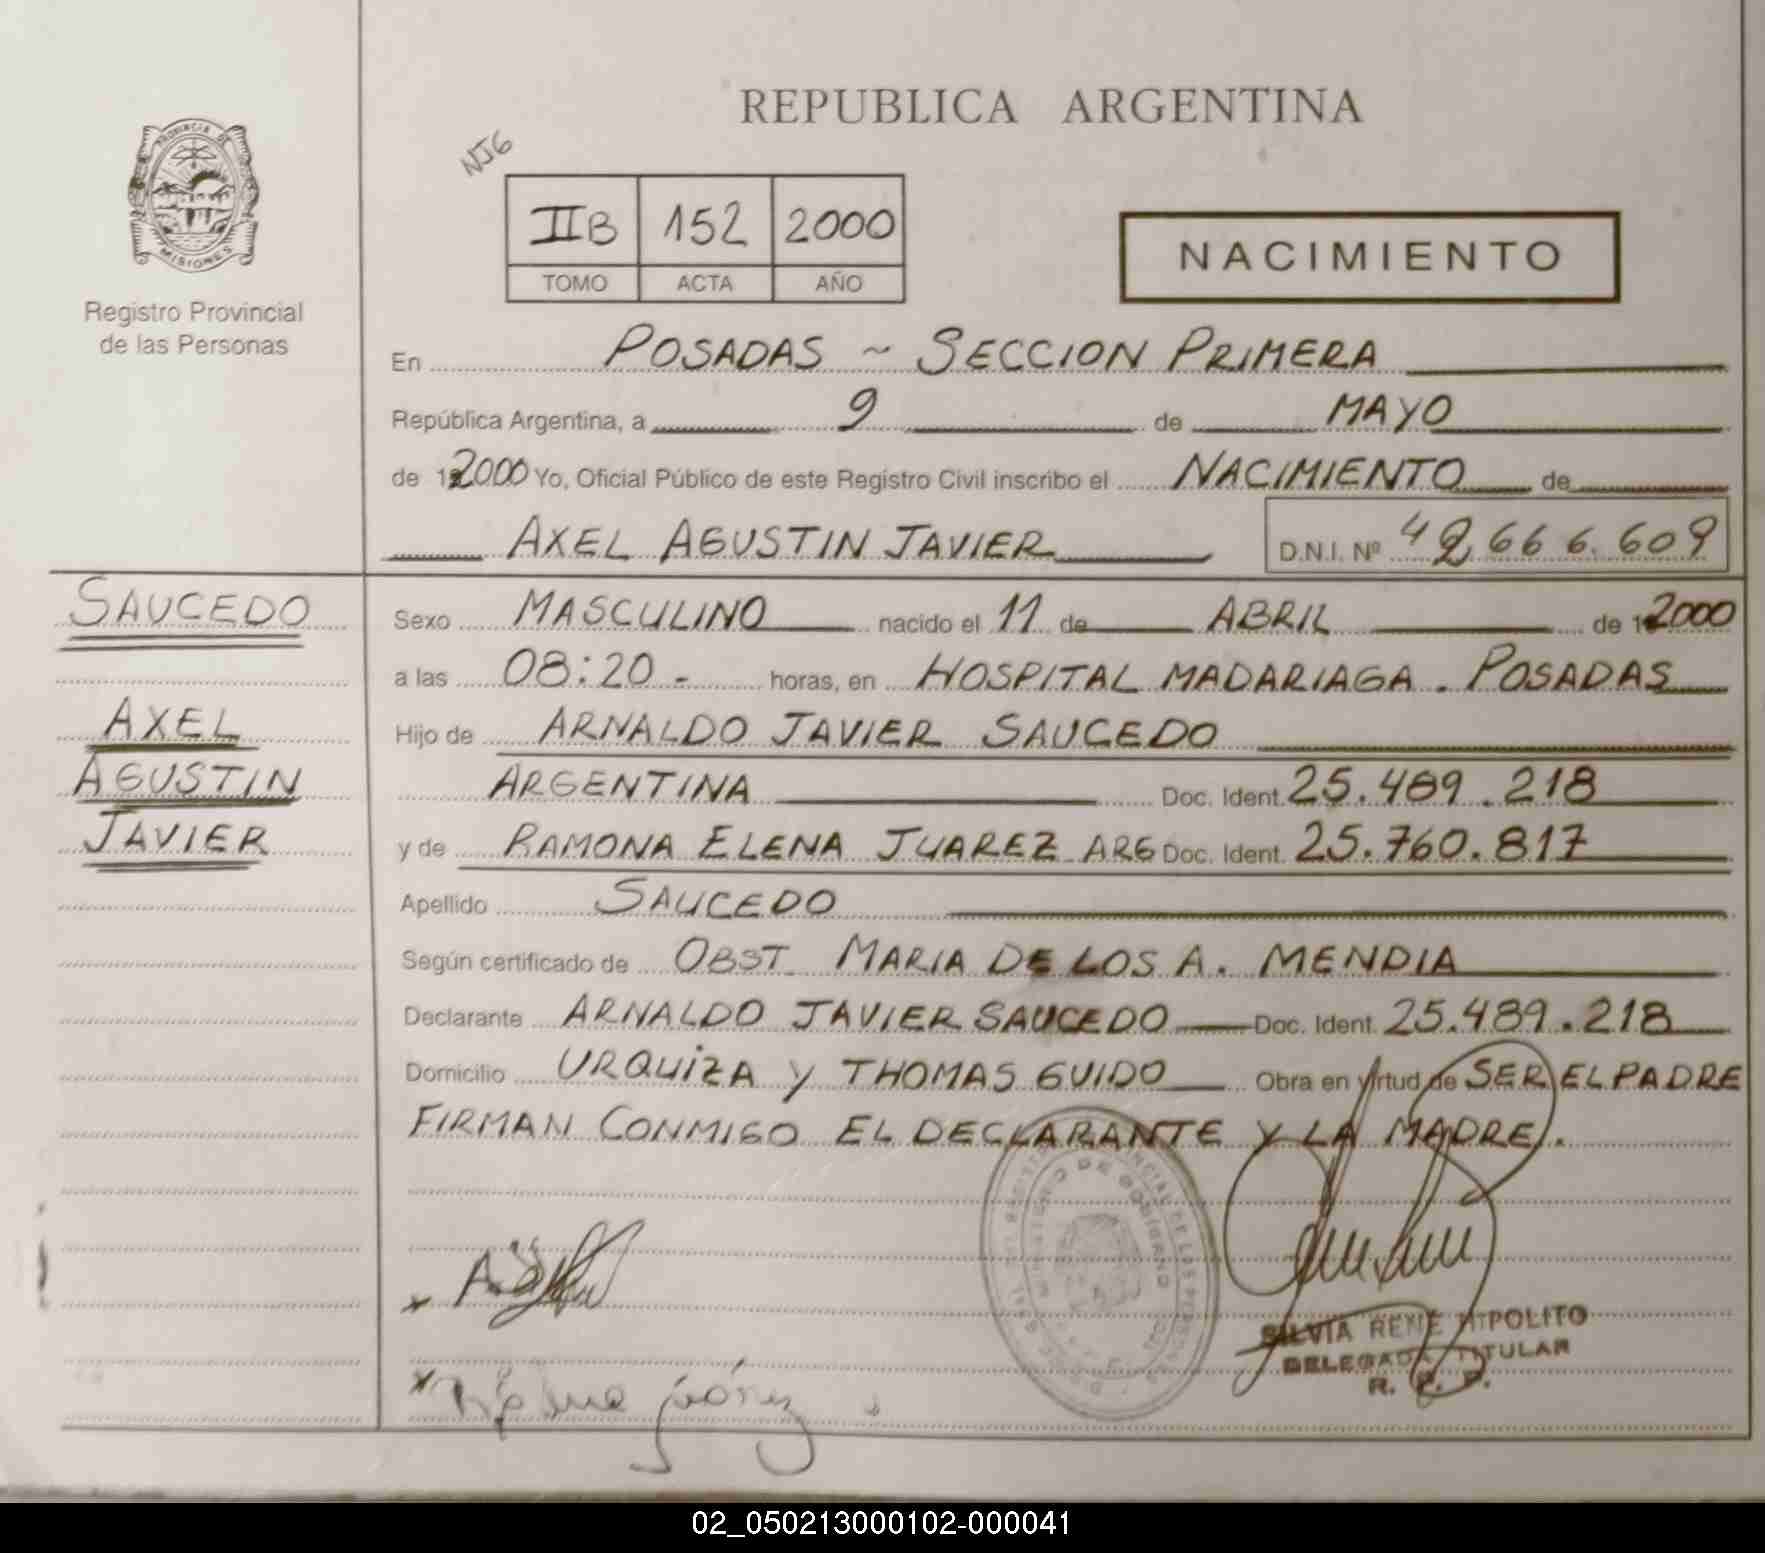 REPUBLICA ARGENTINA
PROVINCIA DE
MISIONES
Registro Provincial
de las Personas
NJ6
IIB 152 2000
TOMO ACTA AÑO
NACIMIENTO
En POSADAS ~ SECCION PRIMERA
República Argentina, a 9 de MAYO
de 2000 Yo, Oficial Público de este Registro Civil inscribo el NACIMIENTO de
AXEL AGUSTIN JAVIER D.N.I. Nº 42.666.609
SAUCEDO
AXEL
AGUSTIN
JAVIER
Sexo MASCULINO nacido el 11 de ABRIL de 2000
a las 08:20 - horas, en HOSPITAL MADARIAGA . POSADAS
Hijo de ARNALDO JAVIER SAUCEDO
ARGENTINA Doc. Ident. 25.489.218
y de RAMONA ELENA JUAREZ ARG Doc. Ident. 25.760.817
Apellido SAUCEDO
Según certificado de OBST. MARIA DE LOS A. MENDIA
Declarante ARNALDO JAVIER SAUCEDO Doc. Ident. 25.489.218
Domicilio URQUIZA Y THOMAS GUIDO Obra en virtud de SER EL PADRE
FIRMAN CONMIGO EL DECLARANTE Y LA MADRE.
SILVIA RENE HIPOLITO
DELEGADA TITULAR
R. P. P.
02_050213000102-000041